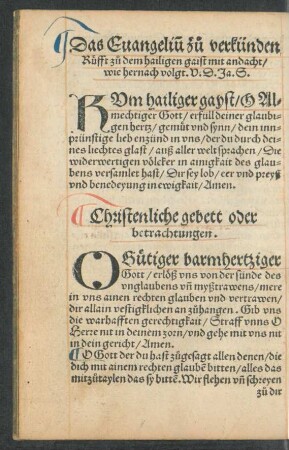 ¶Das Euangeliū zů verkünden
Růfft zů dem hailigen gaist mit andacht/
wie hernach volgt. V. D. Ja. S.
KUm hailiger gayst/ O Al-
mechtiger Gott/ erfüll deiner glaubi-
gen hertz/ gemüt vnd synn/ dein inn-
prünstige lieb enzünd in vns/ der du durch dei-
nes liechtes glast/ auß aller welt sprachen/ Die
widerwertigen völcker in ainigkait des glau-
bens versamlet hast/ Dir sey lob/ eer vnd preyß
vnd benedeyung in ewigkait/ Amen.
¶Christenliche gebett oder
betrachtungen.
O Gütiger barmhertziger
Gott/ erlöß vns von der sünde des
vnglaubens vñ myßtrawens/ mere
in vns ainen rechten glauben vnd vertrawen/
dir allain vestigklichen an zůhangen. Gib vns
die warhafften gerechtigkait/ Straff vnns O
Herre nit in deinem zorn/ vnd gehe mit vns nit
in dein gericht/ Amen.
¶O Gott der du hast zůgesagt allen denen/ die
dich mit ainem rechten glaubē bitten/ alles das
mitzůtaylen das sy bittē. Wir flehen vñ schreyen
zů dir